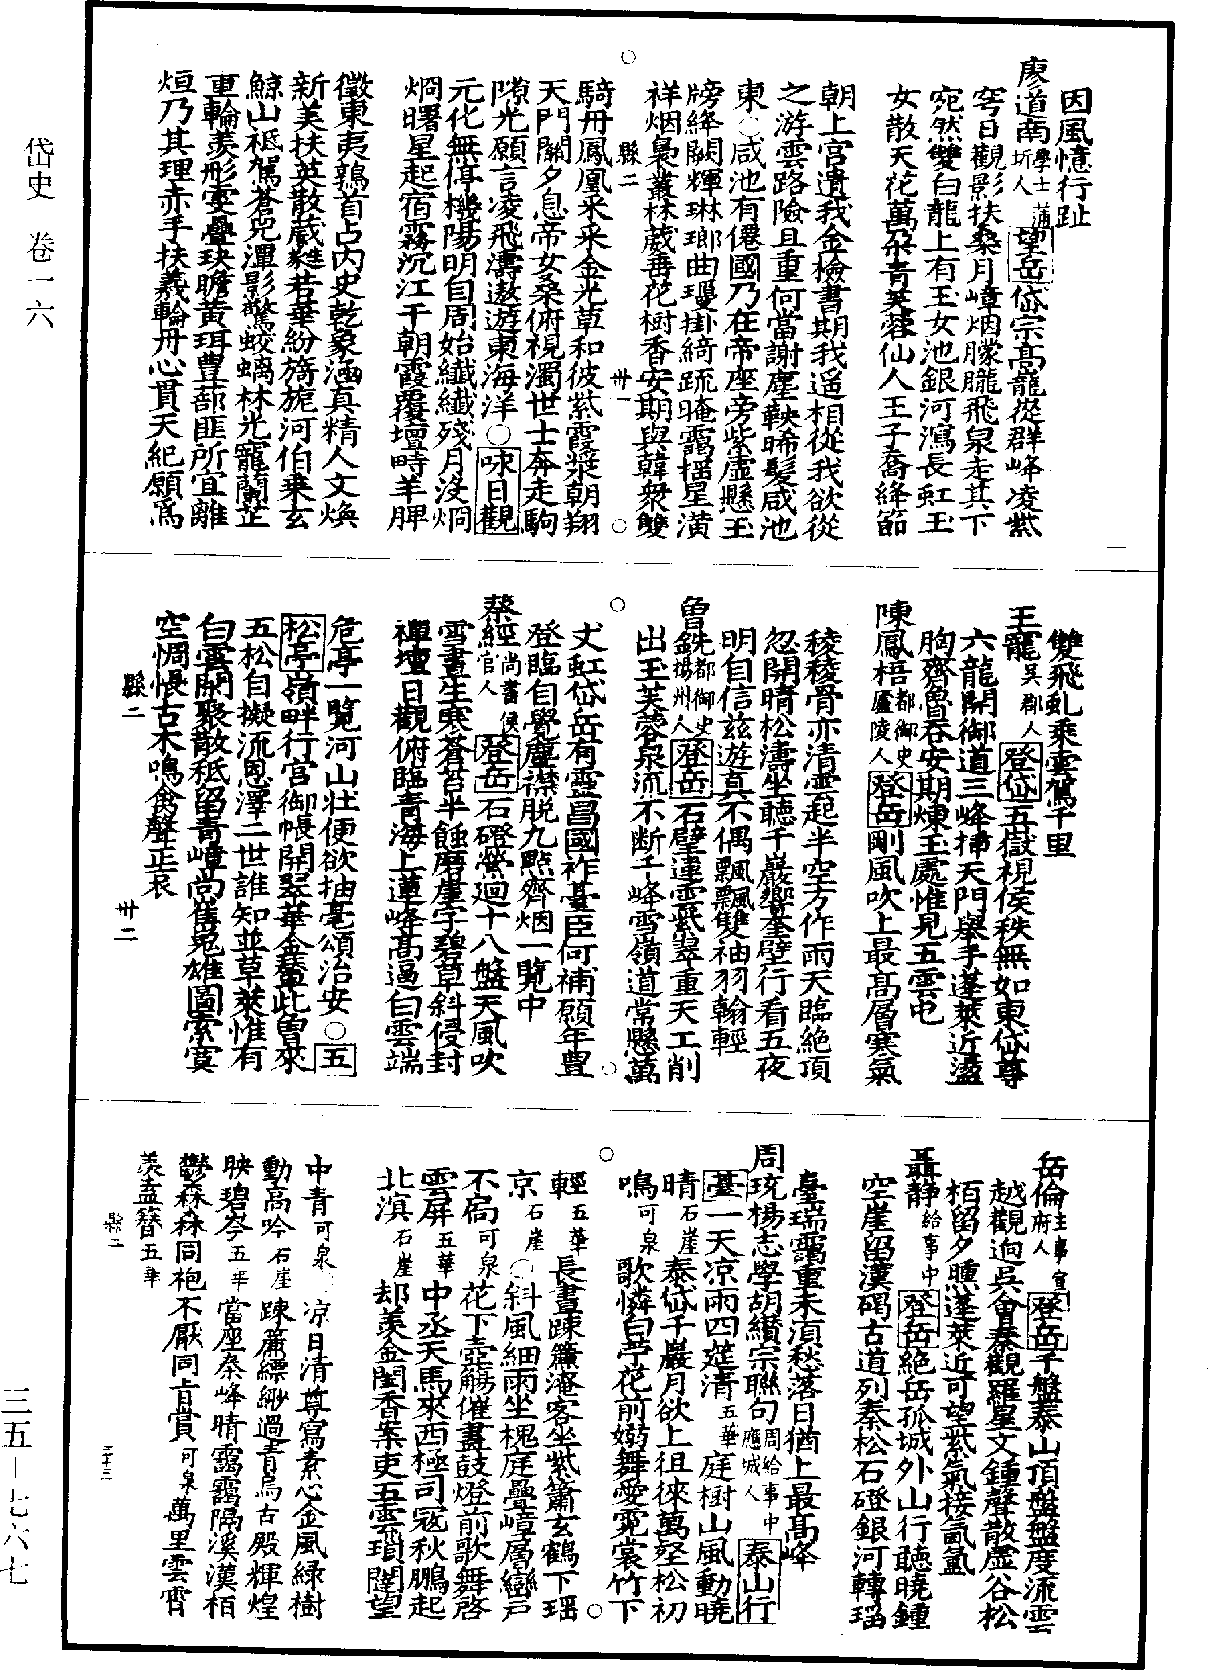 岱史 卷一六
因風憶行趾
廖道南學士蒲圻人望岳岱宗高龍從群峰凌紫
穹日觀影扶桑月嶂烟朦朧飛泉走其下
宛然雙白龍上有玉女池銀河瀉長虹玉
女散天花萬朵青芙蓉仙人王子喬絳節
朝上宮遺我金檢書期我遥相從我欲從
之游雲路險且重何當謝塵鞅晞髮咸池
東○咸池有僊國乃在帝座旁紫虛懸玉
牓絳闕輝琳瑯曲璦掛綺疏晻靄摇星潢
祥烟裊叢林葳蕤花樹香安期與韓衆雙
縣二 卅一
騎丹鳳凰采采金光草和彼紫霞漿朝翔
天門關夕息帝女桑俯視濁世士奔走駒
隙光願言凌飛濤遨遊東海洋○咏日觀
元化無停機陽明自周始纖纖殘月没烱
烱曙星起宿霧沉江干朝霞覆壇畤羊胛
徵東夷鶉首占内史乾象涵真精人文煥
新美扶英散葳蕤若華紛旖旎河伯乘玄
鯨山祗駕蒼兕渾影驚蛟螭林光寵蘭芷
重輪羨形雯疊玦瞻黄珥豊蔀匪所宜離
烜乃其理赤手扶羲輪丹心貫天紀願爲
雙飛虬乘雲駕千里
王寵吳郡人登岱五嶽視侯秩無如東岱尊
六龍開御道三峰揷天門舉手蓬萊近盪
胸齊魯吞安期煉玉處惟見五雲屯
陳鳳梧都御史廬陵人登岳剛風吹上最高層寒氣
稜稜骨亦清雲起半空方作雨天臨絶頂
忽開晴松濤坐聽千巖響奎壁行看五夜
明自信兹遊真不偶飄飄雙袖羽翰輕
魯銑都御史揚州人登岳石壁連雲叠翠重天工削
出玉芙蓉泉流不断千峰雪嶺道常懸萬
丈虹岱岳有靈昌國祚臺臣何補願年豊
登臨自覺塵襟脱九點齊烟一覽中
蔡經尚書侯官人登岳石磴縈迴十八盤天風吹
雪晝生寒蒼苔半蝕磨崖字碧草斜侵封
禪壇日觀俯臨青海上蓮峰高逼白雲端
危亭一覽河山壮便欲抽毫頌治安○五
松亭嶺畔行宮御帳開翠華金輦此曽來
五松自擬流恩澤二世誰知並草萊惟有
白雲閒聚散秪留青嶂尚崔嵬雄圖索寞
空惆悵古木鳴禽聲正哀
縣二 卅二
岳倫主事宣府人登岳千盤泰山頂盤盤度流雲
越觀逈吳會秦觀羅星文鍾聲散虛谷松
栢留夕曛蓬萊近可望紫氣接氤氲
聶静給事中登岳絶岳孤城外山行聽曉鍾
空崖留漢碣古道列秦松石磴銀河轉瑶
臺瑞靄重未須愁落日猶上最高峰
周琉楊志學胡纘宗聯句周給事中應城人泰山行
臺一天凉雨四筵清五華庭樹山風動曉
晴石崖泰岱千巖月欲上徂徠萬壑松初
鳴可泉歌憐白苧花前嫋舞愛霓裳竹下
輕五華長晝踈簾淹客坐紫簫玄鶴下瑶
京石崖○斜風細雨坐槐庭疊嶂層巒戸
不扃可泉花下壺觴催畫鼓燈前歌舞啓
雲屏五華中丞天馬來西極司寇秋鵬起
北溟石崖却羨金閨香案吏五雲瑣闥望
中青可泉凉日清尊寫素心金風緑樹
動高吟石崖踈簾縹緲過青鳥古殿輝煌
映碧岑五華當座秦峰晴靄靄隔溪漢栢
鬱森森同袍不厭同肯賞可泉萬里雲霄
羨盍簪五華
縣二 三十三
三五－七六七